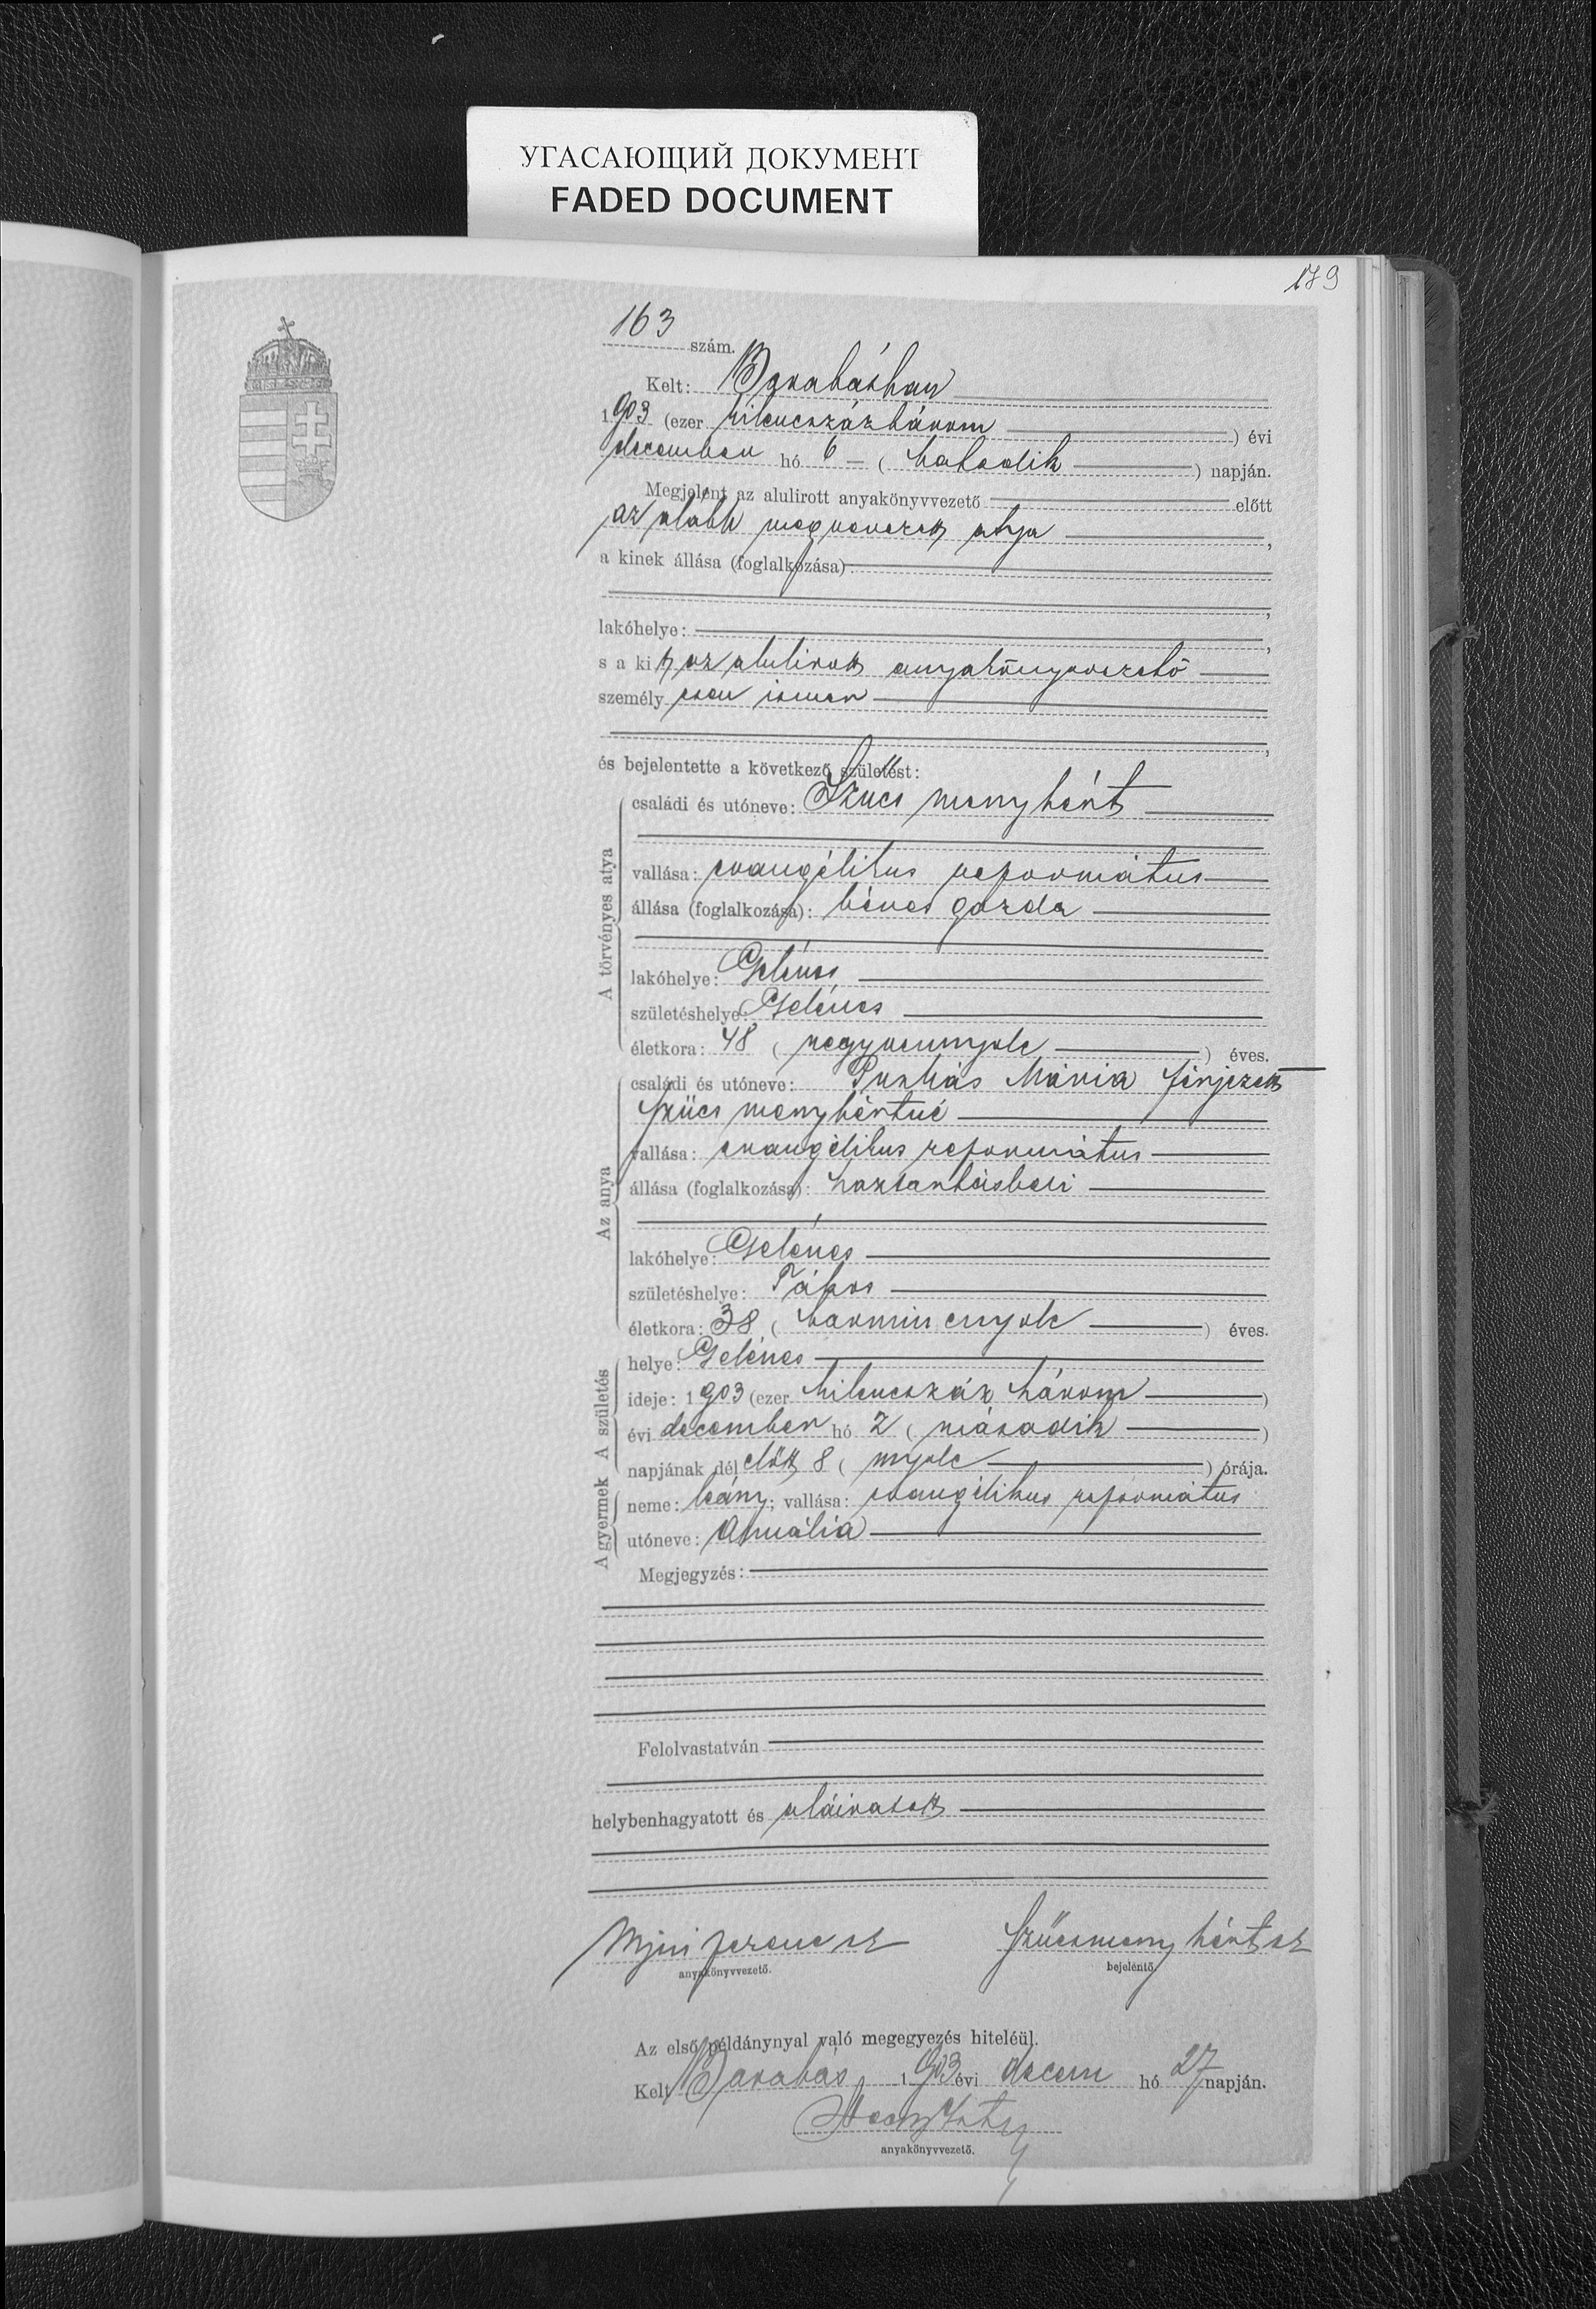 УГАСАЮЩИЙ ДОКУМЕНТ
FADED DOCUMENT
179
163 szám.
Kelt: Barabásban
1903 (ezer kilenczázhárom) évi
december hó 6 (hatodik) napján.
Megjelent az alulirott anyakönyvvezető előtt
az alább megnevezett atya,
a kinek állása (foglalkozása)
lakóhelye:
s a kit az alulirott anyakönyvvezető
személyesen ismer
és bejelentette a következő születést:
A törvényes atya
családi és utóneve: Szücs Menyhért
vallása: evangélikus református
állása (foglalkozása): béres gazda
lakóhelye: Gelénes
születéshelye: Gelénes
életkora: 48 (negyvennyolc) éves.
Az anya
családi és utóneve: Puskás Mária férjezett
Szücs Menyhértné
vallása: evangélikus református
állása (foglalkozása): háztartásbeli
lakóhelye: Gelénes
születéshelye: Tákos
életkora: 38 (harmincnyolc) éves.
A születés
helye: Gelénes
ideje: 1903 (ezer kilencszáz három)
évi december hó 2 (második)
napjának délelőtt 8 (nyolc) órája.
A gyermek
neme: leány; vallása: evangélikus református
utóneve: Amália
Megjegyzés:
Felolvastatván
helybenhagyatott és aláiratott
Ferenc sk Szűcs Menyhért sk
anyakönyvvezető. bejelentő.
Az első példánynyal való megegyezés hiteléül.
Kelt Barabás 1903 évi decem hó 27 napján.
anyakönyvvezető.